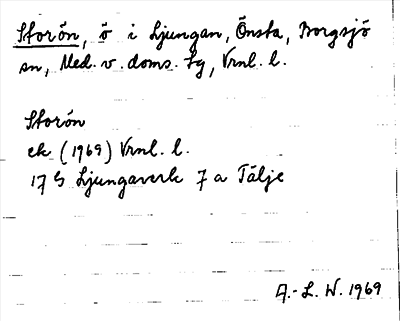 Storön, ö i Ljungan, Önsta, Borgsjö
sn, Med. v. doms. tg, Vrnl. l.
Storön
ek (1969) Vrnl. l.
17 G Ljungaverk 7 a Tälje
A.-L. W. 1969